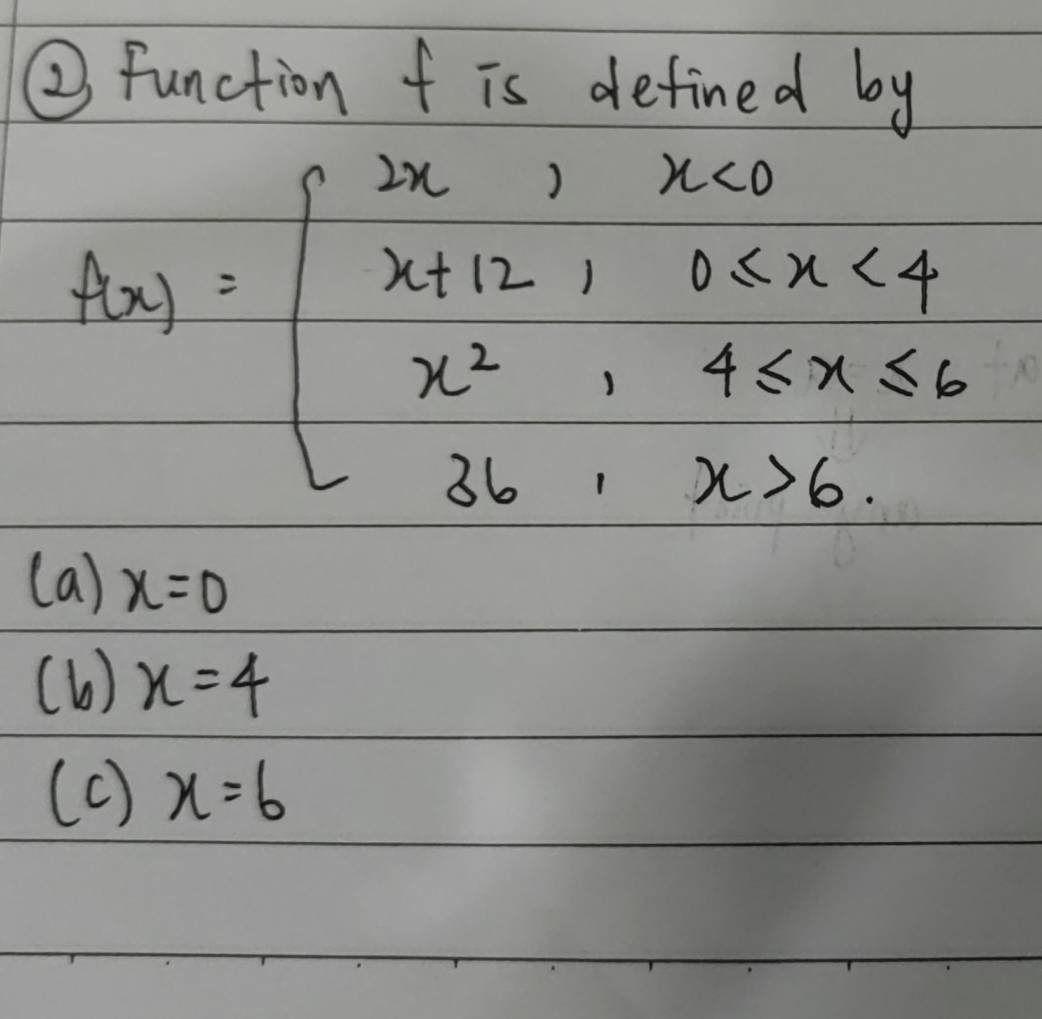 ② Function f is defined by
2x , x<0
f(x) = { x+12 , 0≤x<4
x² , 4≤x≤6
36 , x>6.
(a) x=0
(b) x=4
(c) x=6